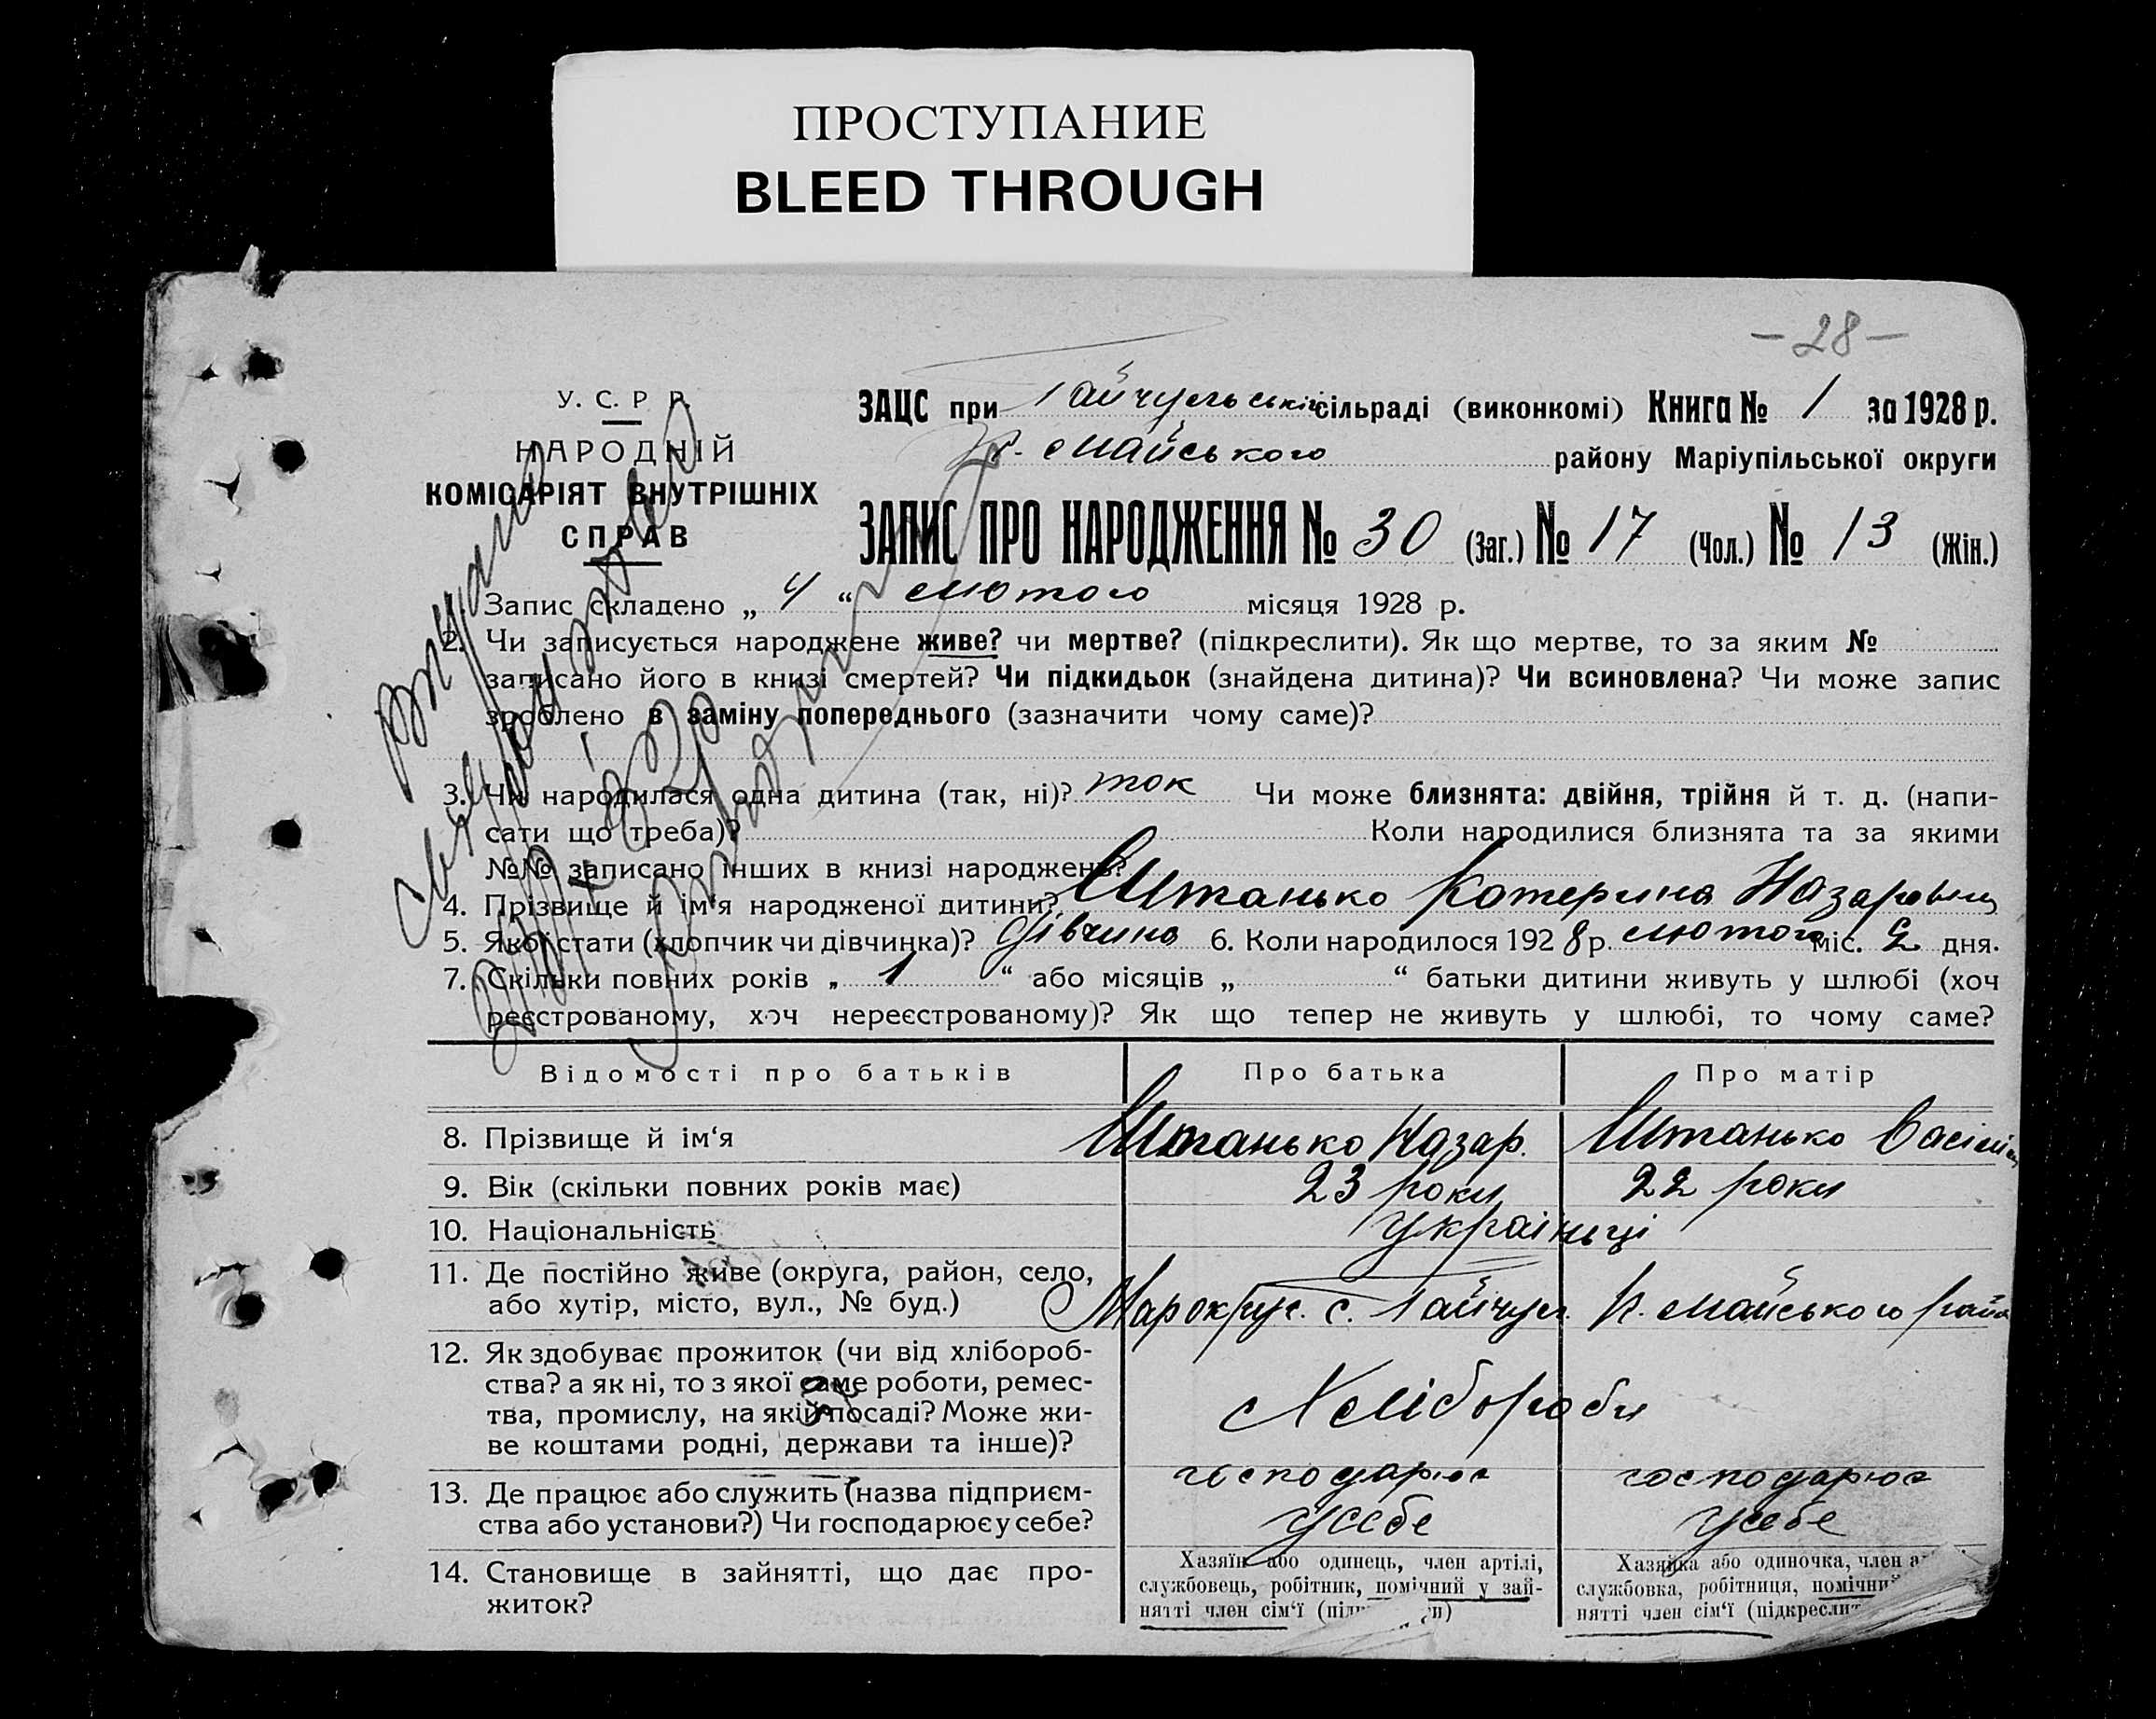 ПРОСТУПАНИЕ
BLEED THROUGH
- 28 -
У. С. Р Р.
НАРОДНІЙ
КОМІСАРІЯТ ВНУТРІШНІХ
СПРАВ
ЗАЦС при Гайчульській сільраді (виконкомі) Книга № 1 за 1928 р.
Н. Майського району Маріупільської округи
ЗАПИС ПРО НАРОДЖЕННЯ № 30 (Заг.) № 17 (Чол.) № 13 (Жін.)
1. Запис складено „ 4 “ лютого місяця 1928 р.
2. Чи записується народжене живе? чи мертве? (підкреслити). Як що мертве, то за яким №
записано його в книзі смертей? Чи підкидьок (знайдена дитина)? Чи всиновлена? Чи може запис
зроблено в заміну попереднього (зазначити чому саме)?
3. Чи народилася одна дитина (так, ні)? так Чи може близнята: двійня, трійня й т. д. (напи-
сати що треба)? Коли народилися близнята та за якими
№№ записано інших в книзі народжень?
4. Прізвище й ім'я народженої дитини? Штанько Катерина
5. Якої стати (хлопчик чи дівчинка)? дівчина 6. Коли народилося 1928 р. лютого міс. 2 дня.
7. Скільки повних років „ 1 “ або місяців „ “ батьки дитини живуть у шлюбі (хоч
реєстрованому, хоч нереєстрованому)? Як що тепер не живуть у шлюбі, то чому саме?
Відомості про батьків Про батька Про матір
8. Прізвище й ім‘я Штанько Назар. Штанько
9. Вік (скільки повних років має) 23 роки 22 роки
10. Національність українці
11. Де постійно живе (округа, район, село,
або хутір, місто, вул., № буд.) Марокруг. с. Гайчул. Н. Майського райо
12. Як здобуває прожиток (чи від хлібороб-
ства? а як ні, то з якої саме роботи, ремес-
тва, промислу, на якій посаді? Може жи-
ве коштами родні, держави та інше)?
Хлібороби
13. Де працює або служить (назва підприєм-
ства або установи?) Чи господарює у себе?
господарює
усебе
господарює
усебе
14. Становище в зайнятті, що дає про-
житок?
Хазяїн або одинець, член артілі,
службовець, робітник, помічний у зай-
нятті член сім‘ї
Хазяйка або одиночка, член
службовка, робітниця,
нятті член сім‘ї